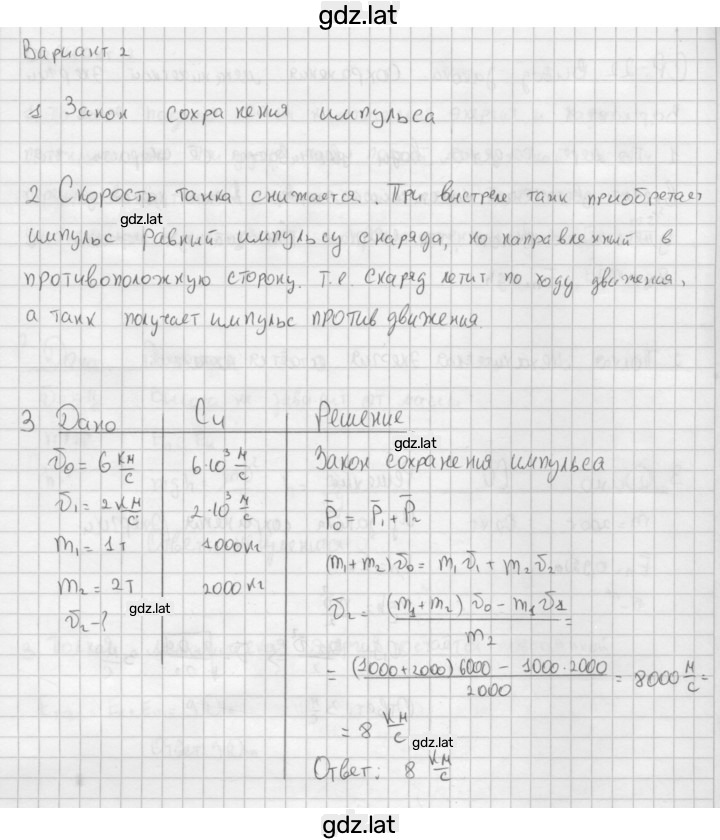 gdz.lat
Вариант 2
1 Закон сохранения импульса
2 Скорость танка снижается. При выстреле танк приобретает
gdz.lat
импульс равный импульсу снаряда, но направленный в
противоположную сторону. Т.е. снаряд летит по ходу движения,
а танк получает импульс против движения.
gdz.lat
3 Дано Си Решение
gdz.lat
v̄0 = 6 км/с 6·10³ м/с Закон сохранения импульса
v̄1 = 2 км/с 2·10³ м/с P̄0 = P̄1 + P̄2
m1 = 1т 1000кг (m1+m2)v̄0 = m1v̄1 + m2v̄2
m2 = 2т 2000кг
gdz.lat
v̄2 - ? v̄2 = ((m1+m2)v̄0 - m1v̄1)/m2 =
= ((1000+2000)6000 - 1000·2000)/2000 = 8000 м/с =
= 8 км/с
gdz.lat
Ответ: 8 км/с
gdz.lat